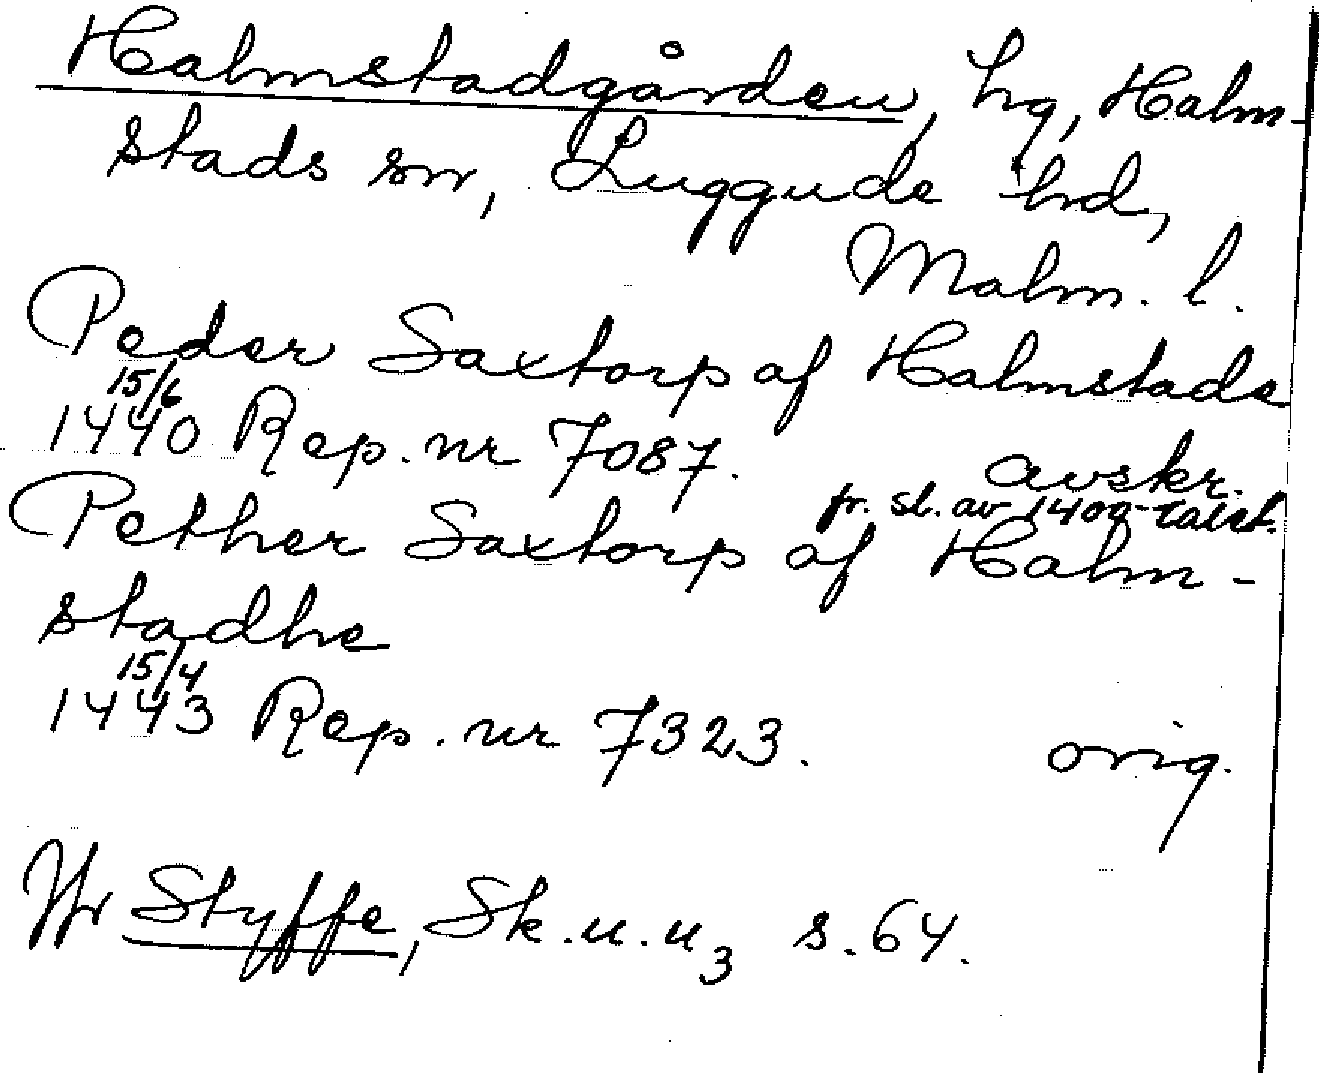 Halmstadgården, hg, Halm-
stads sn, Luggude hd,
Malm. l.
Peder Saxtorp af Halmstade
15/6
1440 Rep. nr 7087. avskr.
fr. sl. av 1400-talet.
Pether Saxtorp af Halm-
stadhe
15/4
1443 Rep. nr 7323. orig.
Jfr Styffe, Sk. u. u3 s. 64.